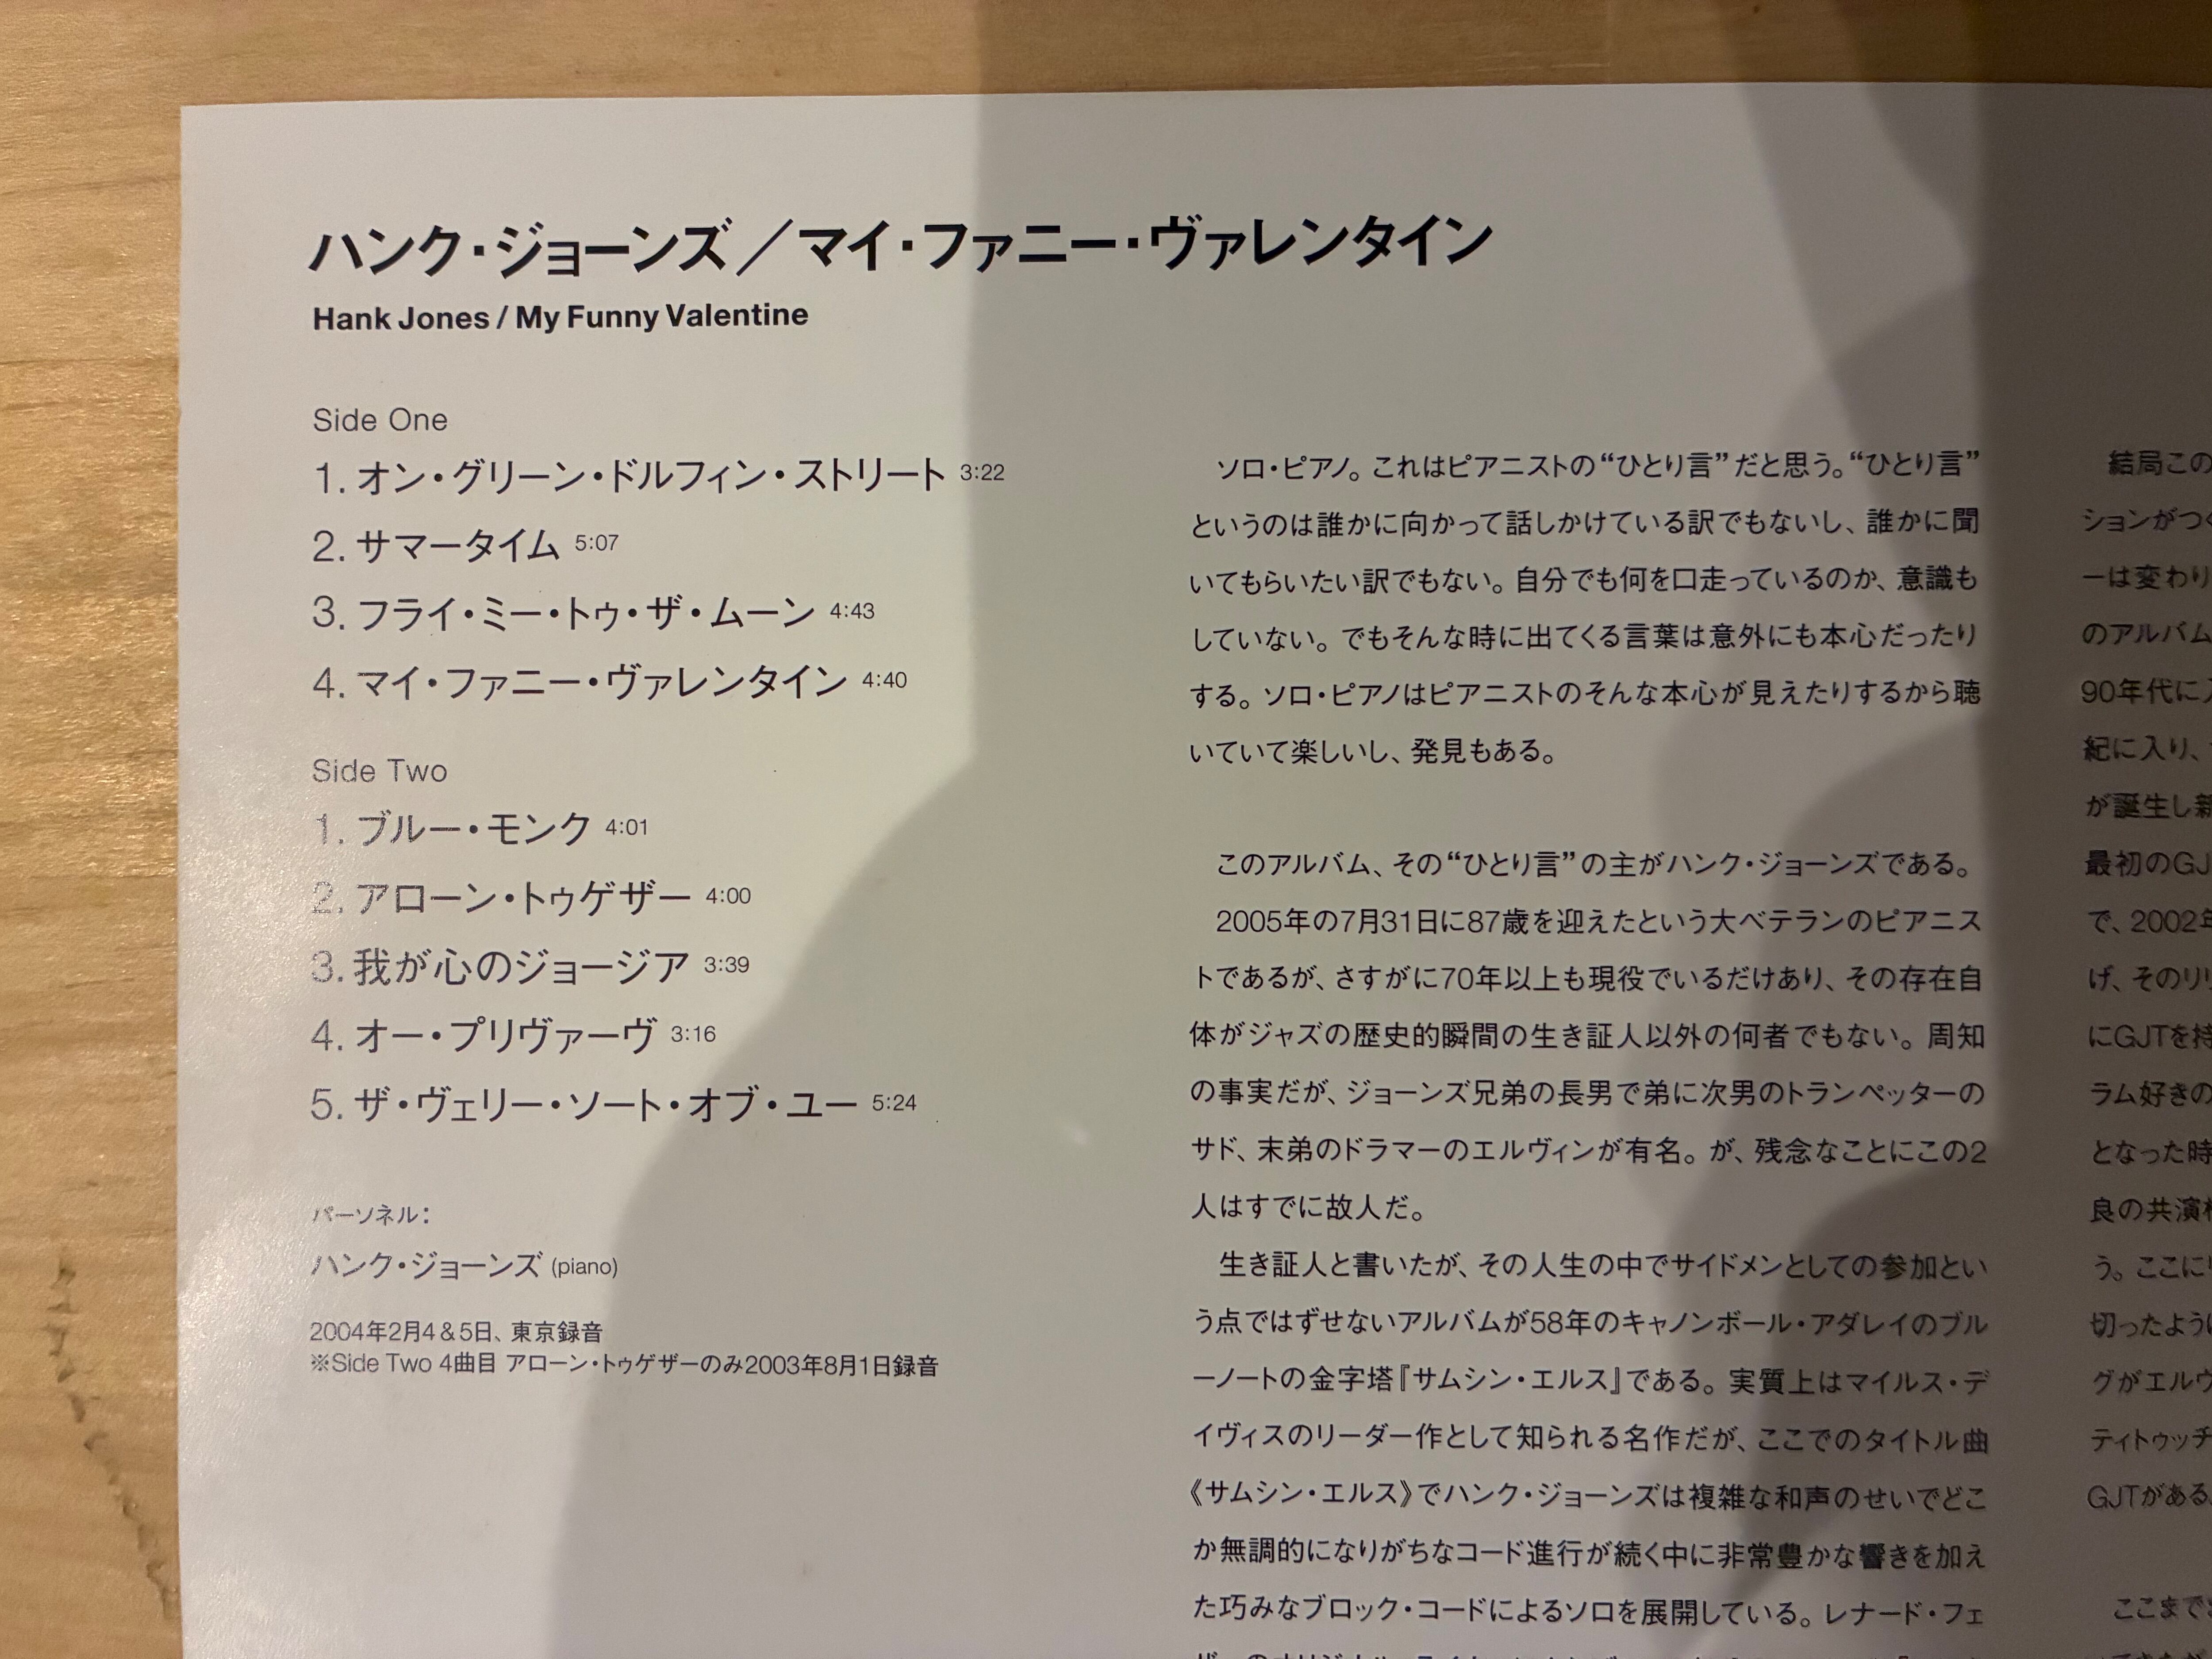 ハンク・ジョーンズ／マイ・ファニー・ヴァレンタイン
Hank Jones / My Funny Valentine
Side One
1. オン・グリーン・ドルフィン・ストリート 3:22
2. サマータイム 5:07
3. フライ・ミー・トゥ・ザ・ムーン 4:43
4. マイ・ファニー・ヴァレンタイン 4:40
Side Two
1. ブルー・モンク 4:01
2. アローン・トゥゲザー 4:00
3. 我が心のジョージア 3:39
4. オー・プリヴァーヴ 3:16
5. ザ・ヴェリー・ソート・オブ・ユー 5:24
パーソネル：
ハンク・ジョーンズ (piano)
2004年2月4＆5日、東京録音
※Side Two 4曲目 アローン・トゥゲザーのみ2003年8月1日録音
ソロ・ピアノ。これはピアニストの“ひとり言”だと思う。“ひとり言”
というのは誰かに向かって話しかけている訳でもないし、誰かに聞
いてもらいたい訳でもない。自分でも何を口走っているのか、意識も
していない。でもそんな時に出てくる言葉は意外にも本心だったり
する。ソロ・ピアノはピアニストのそんな本心が見えたりするから聴
いていて楽しいし、発見もある。
このアルバム、その“ひとり言”の主がハンク・ジョーンズである。
2005年の7月31日に87歳を迎えたという大ベテランのピアニス
トであるが、さすがに70年以上も現役でいるだけあり、その存在自
体がジャズの歴史的瞬間の生き証人以外の何者でもない。周知
の事実だが、ジョーンズ兄弟の長男で弟に次男のトランペッターの
サド、末弟のドラマーのエルヴィンが有名。が、残念なことにこの2
人はすでに故人だ。
生き証人と書いたが、その人生の中でサイドメンとしての参加とい
う点ではずせないアルバムが58年のキャノンボール・アダレイのブル
ーノートの金字塔『サムシン・エルス』である。実質上はマイルス・デ
イヴィスのリーダー作として知られる名作だが、ここでのタイトル曲
《サムシン・エルス》でハンク・ジョーンズは複雑な和声のせいでどこ
か無調的になりがちなコード進行が続く中に非常豊かな響きを加え
た巧みなブロック・コードによるソロを展開している。レナード・フェ
結局この
ションがつ
ーは変わり
のアルバム
90年代に
紀に入り、
が誕生し新
最初のGJ
で、2002年
げ、そのリリ
にGJTを持
ラム好きの
となった時
良の共演
う。ここに
切ったよう
グがエルヴ
ティトゥッチ
GJTがある
ここまで